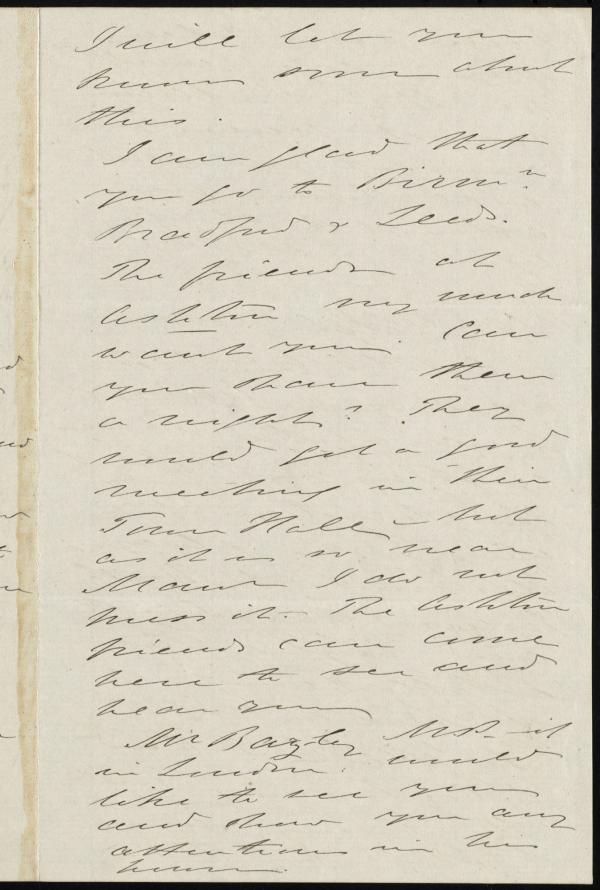 I will let you
know soon about
this.
I am glad that
you go to Birmm.
Bradford & Leeds.
The friends at
Ashton very much
want you. Can
you spare them
a night? They
would get a good
meeting in their
Town Hall – but
as it is so near
Manr I do not
press it. The Ashton
friends can come
here to see and
hear you
Mr Bazley M.P. – if
in London. would
like to see you
and show you any
attentions in his
house.